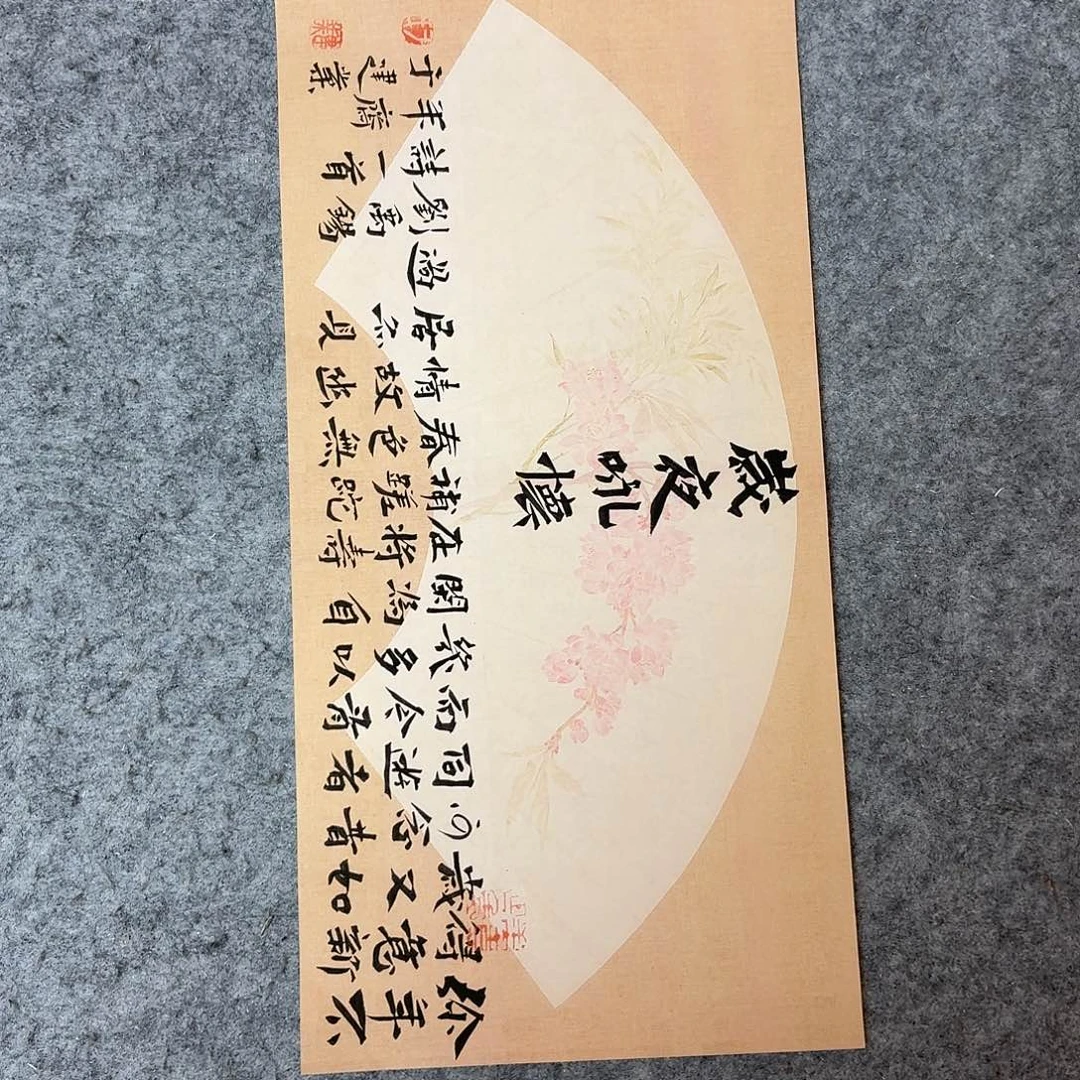 歲夜咏懷
弥年不
得意新
歲又如
何念昔
同遊者
而今有
幾多以
閑為自
在將壽
補蹉跎
春色無
情故幽
居亦見
過
劉禹錫
詩一首
齋
于建業